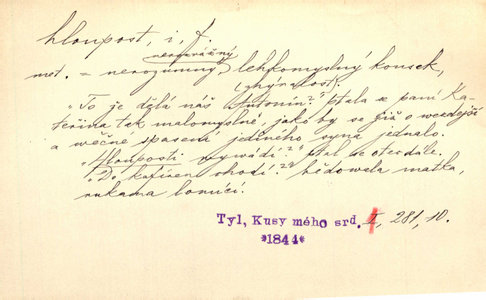 hloupost, i, f.
nerozvážný
met. = nerozumný, lehkomyslný kousek,
(chýralost).
„To je dělá náš Antonín?" ptala se paní Ka-
teřina tak malomyslně, jako by se jižo wezdejší
a wěčné spasení jediného syna jednalo.
„Hlouposti wywádí?" ptal se otec dále.
„Do kasíren chodí?" bědowala matka,
rukama lomíc.
Tyl, Kusy mého srd. I, 281, 10.
*1844*